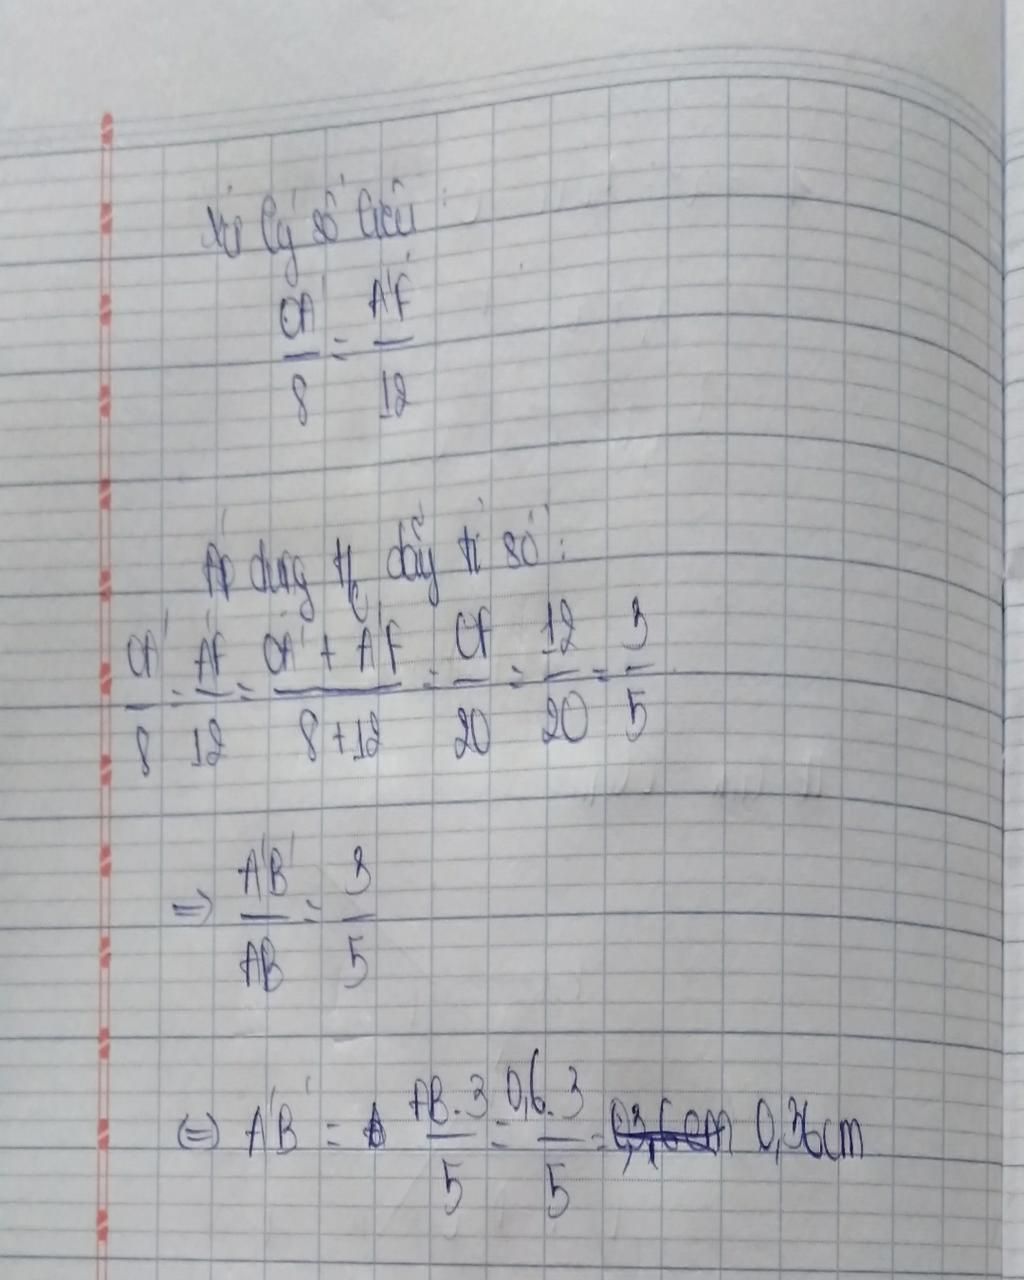 Xử lý số liệu:
OA'/8 = A'F/12
Áp dụng t/c dãy tỉ số:
OA'/8 = A'F/12 = OA' + A'F/8+12 = OF/20 = 12/20 = 3/5
=> A'B'/AB = 3/5
<=> A'B' = AB.3/5 = 0,6.3/5 = 0,36cm